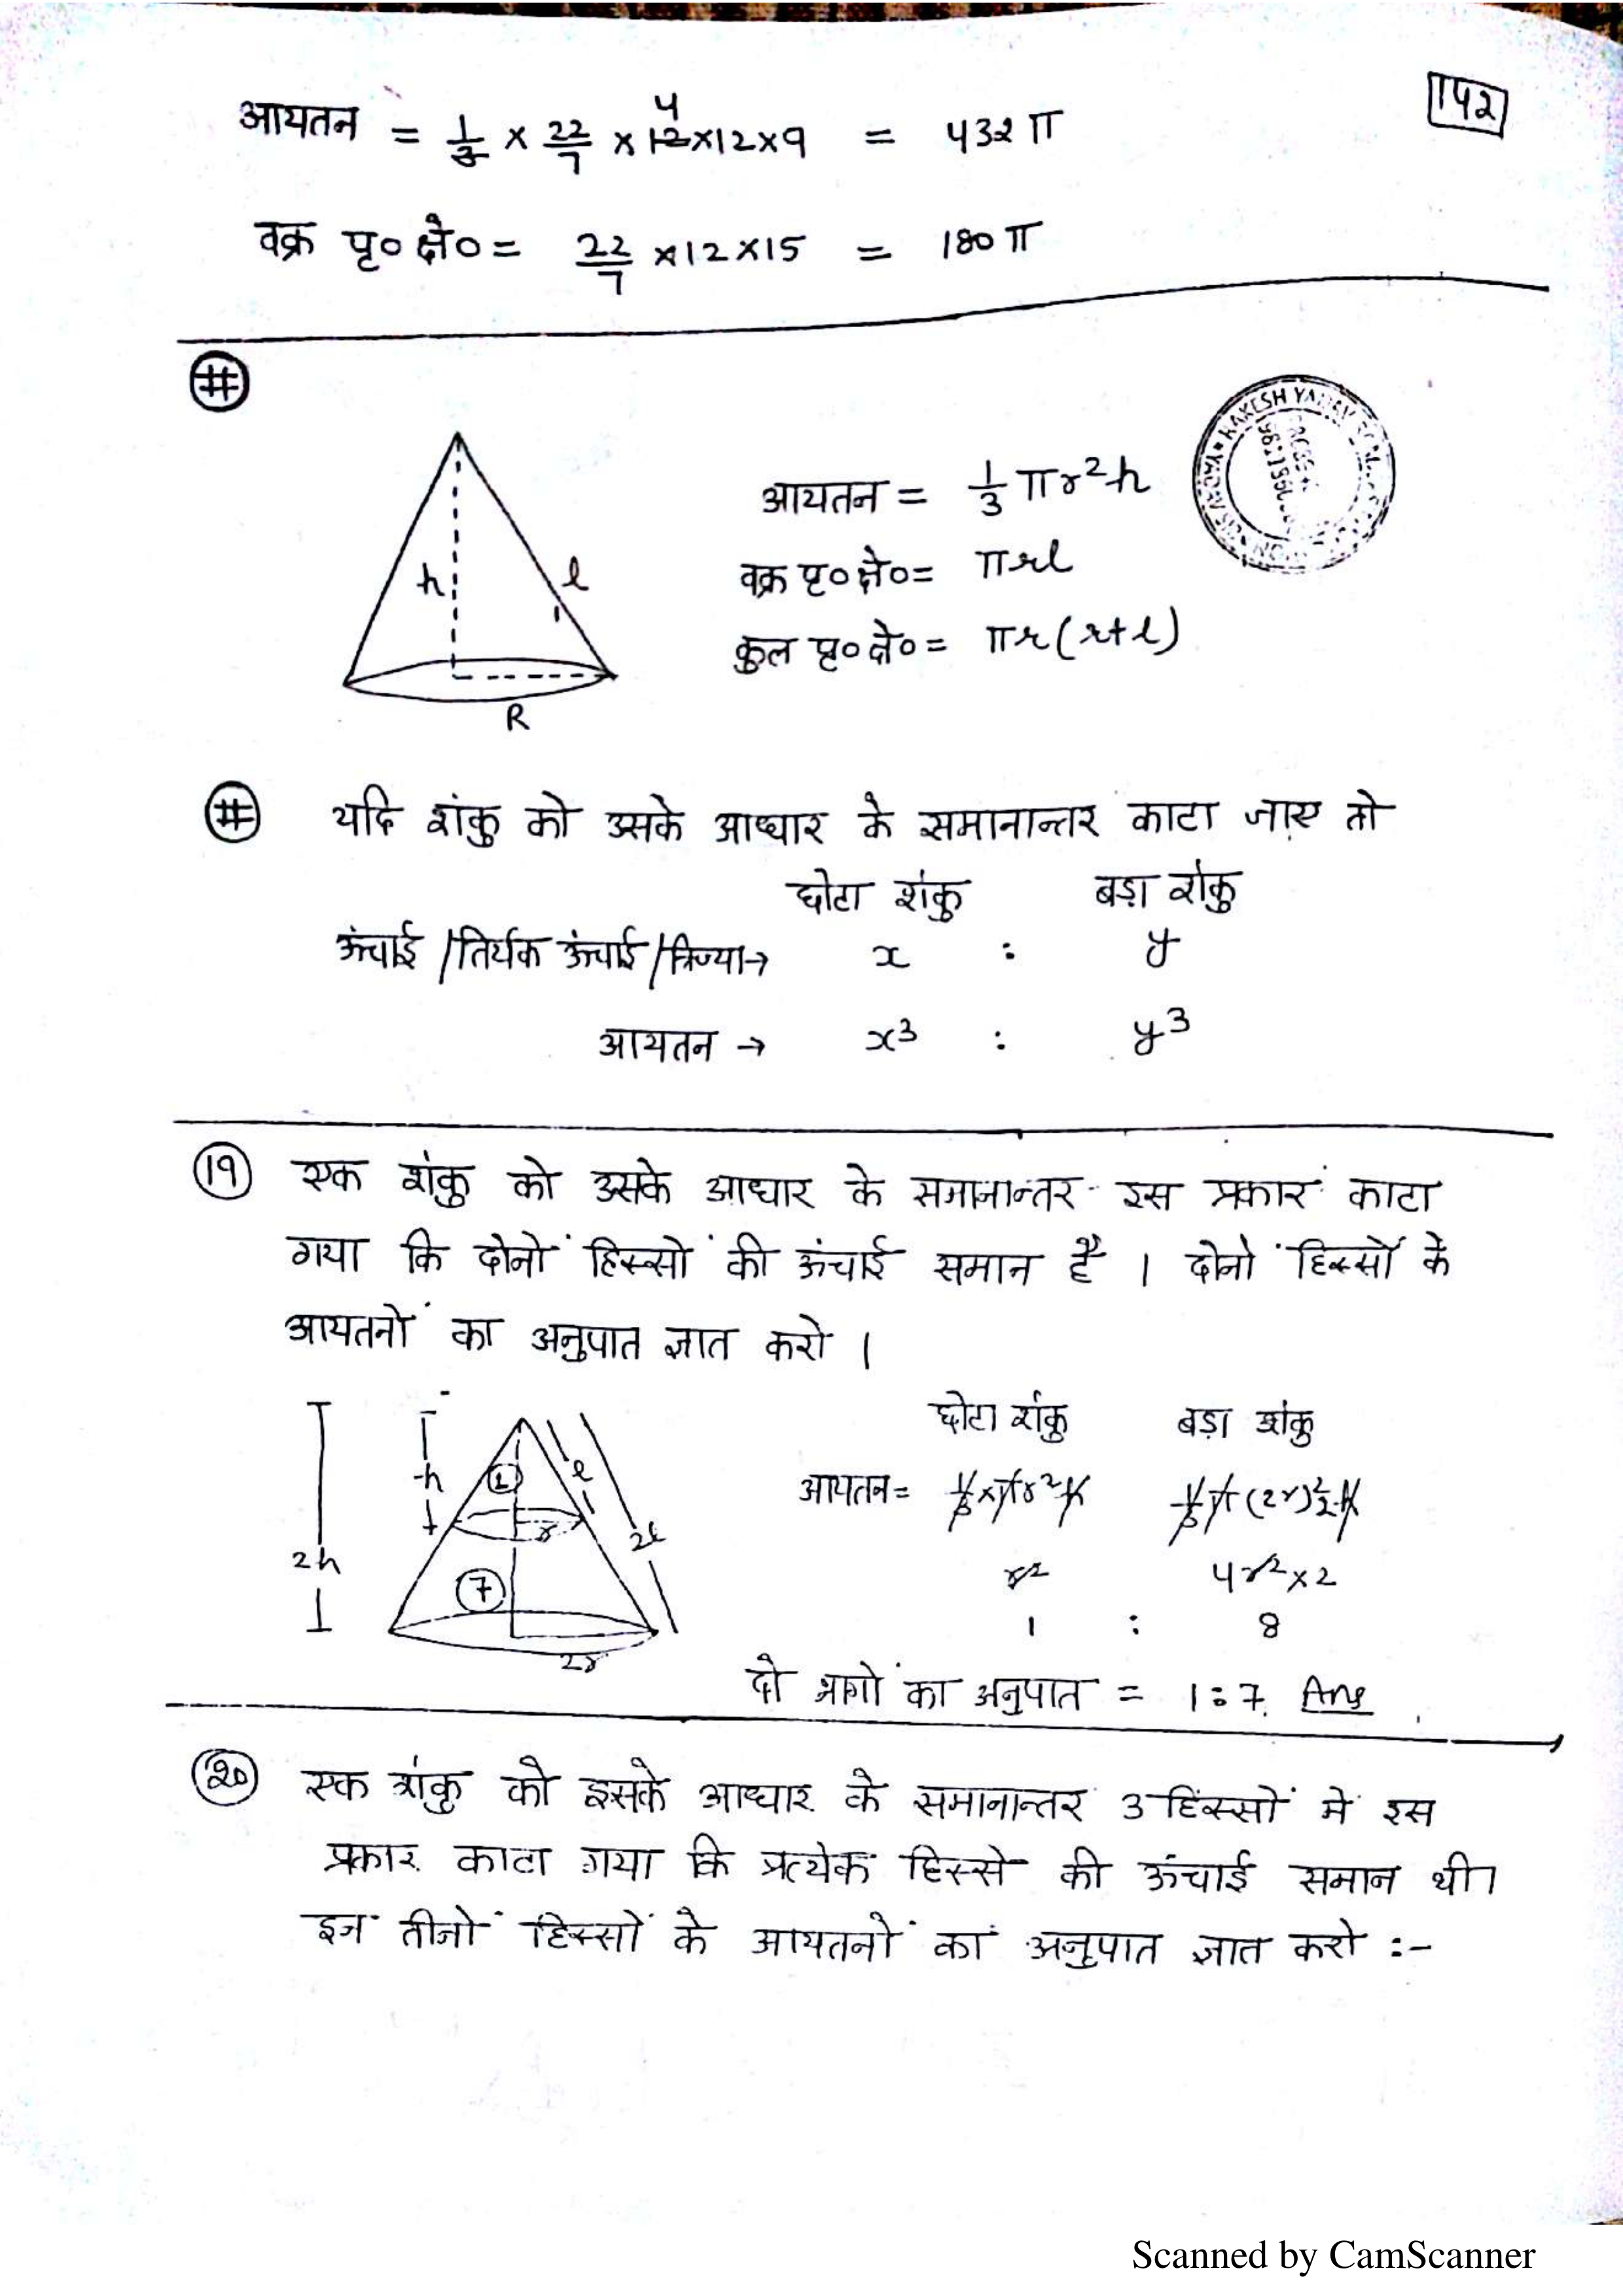 142
आयतन = 1/3 × 22/7 × 12×12×9 = 432 π
4
वक्र पृ० क्षे० = 22/7 ×12×15 = 180 π
#
RAKESH YADAV
आयतन = 1/3 πr²h
h
l
वक्र पृ० क्षे० = πrl
कुल पृ० क्षे० = πr(r+l)
R
# यदि शंकु को उसके आधार के समानान्तर काटा जाए तो
छोटा शंकु बड़ा शंकु
ऊंचाई/तिर्यक ऊंचाई/त्रिज्या→ x : y
आयतन → x³ : y³
19 एक शंकु को उसके आधार के समानान्तर इस प्रकार काटा
गया कि दोनों हिस्सों की ऊंचाई समान है । दोनो हिस्सों के
आयतनों का अनुपात ज्ञात करो ।
छोटा शंकु बड़ा शंकु
h
1
l
आयतन = 1/3×πr²h 1/3π(2r)²2h
r
2l
2h
7
r² 4r²×2
1 : 8
2r
दो भागों का अनुपात = 1:7. Ans
20 एक शंकु को इसके आधार के समानान्तर 3 हिस्सों मे इस
प्रकार काटा गया कि प्रत्येक हिस्से की ऊंचाई समान थी।
इन तीनों हिस्सों के आयतनों का अनुपात ज्ञात करो :-
Scanned by CamScanner